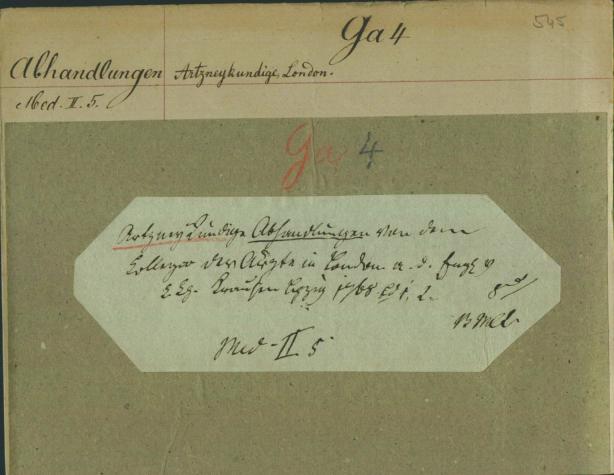 Ga 4
545
Abhandlungen Artzneykundige, London.
Med. II. 5.
Ga 4
Artzneykündige Abhandlungen von dem
Collegio der Ärzte in London a. d. Engl. v
Krausen Lpzig 1768 Bd 1. 2. 8°
Med - II 5